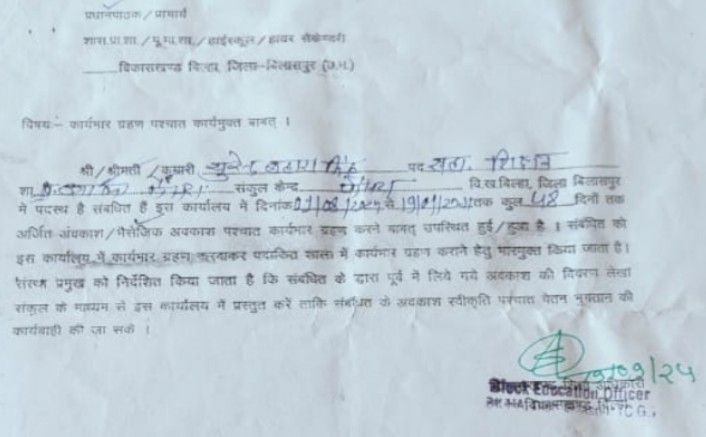 प्रधानपाठक / प्राचार्य
शास.प्रा.शा. / पू.मा.शा. / हाईस्कूल / हायर सेकेण्डरी
विकासखण्ड बिल्हा, जिला-बिलासपुर (छ.ग.)
विषय:- कार्यभार ग्रहण पश्चात कार्यमुक्त बाबत् ।
श्री / श्रीमती / कुमारी सुरेन्द्र सिंह पद सहा. शिक्षक
शा. संकुल केन्द्र वि.ख.बिल्हा, जिला बिलासपुर
में पदस्थ है संबंधित है इस कार्यालय में दिनांक से तक कुल 48 दिनों तक
अर्जित अवकाश / मैसेजिक अवकाश पश्चात कार्यभार ग्रहण करने बाबत् उपस्थित हुई / हुआ है । संबंधित को
इस कार्यालय में कार्यभार ग्रहण करवाकर पदांकित शाला में कार्यभार ग्रहण कराने हेतु भारमुक्त किया जाता है।
संस्था प्रमुख को निर्देशित किया जाता है कि संबंधित के द्वारा पूर्व में लिये गये अवकाश की विवरण लेखा
संकुल के माध्यम से इस कार्यालय में प्रस्तुत करें ताकि संबंधित के अवकाश स्वीकृति पश्चात वेतन भुगतान की
कार्यवाही की जा सके ।
/09/24
Block Education Officer